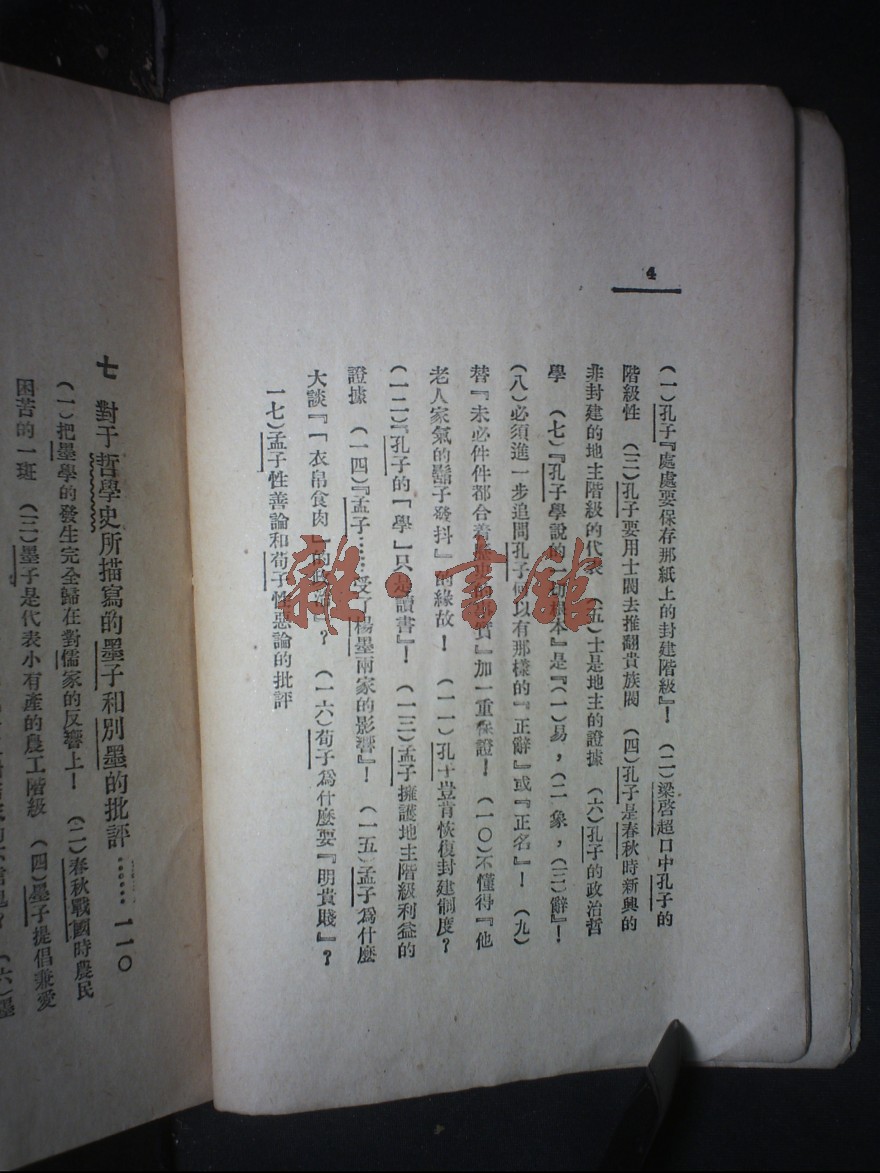 4
（一）孔子『處處要保存那紙上的封建階級』！　（二）梁啓超口中孔子的
階級性　（三）孔子要用士閥去推翻貴族閥　（四）孔子是春秋時新興的
非封建的地主階級的代表　（五）士是地主的證據　（六）孔子的政治哲
學　（七）『孔子學說的一切根本』是『（一）易，（二）象，（三）辭』！
（八）必須進一步追問孔子何以有那樣的『正辭』或『正名』！　（九）
替『未必件件都合着歷史的事實』加一重保證！　（一〇）不懂得『他
老人家氣的鬍子發抖』的緣故！　（一一）孔子豈肯恢復封建制度？
（一二）『孔子的「學」只是讀書』！　（一三）孟子擁護地主階級利益的
證據　（一四）『孟子……受了楊墨兩家的影響』！　（一五）孟子爲什麼
大談『「衣帛食肉」的　　』？　（一六）荀子爲什麼要『明貴賤』？
一七）孟子性善論和荀子性惡論的批評
七　對于哲學史所描寫的墨子和別墨的批評……一一〇
（一）把墨學的發生完全歸在對儒家的反響上！　（二）春秋戰國時農民
困苦的一斑　（三）墨子是代表小有產的農工階級　（四）墨子提倡兼愛
（六）墨
雜·書館